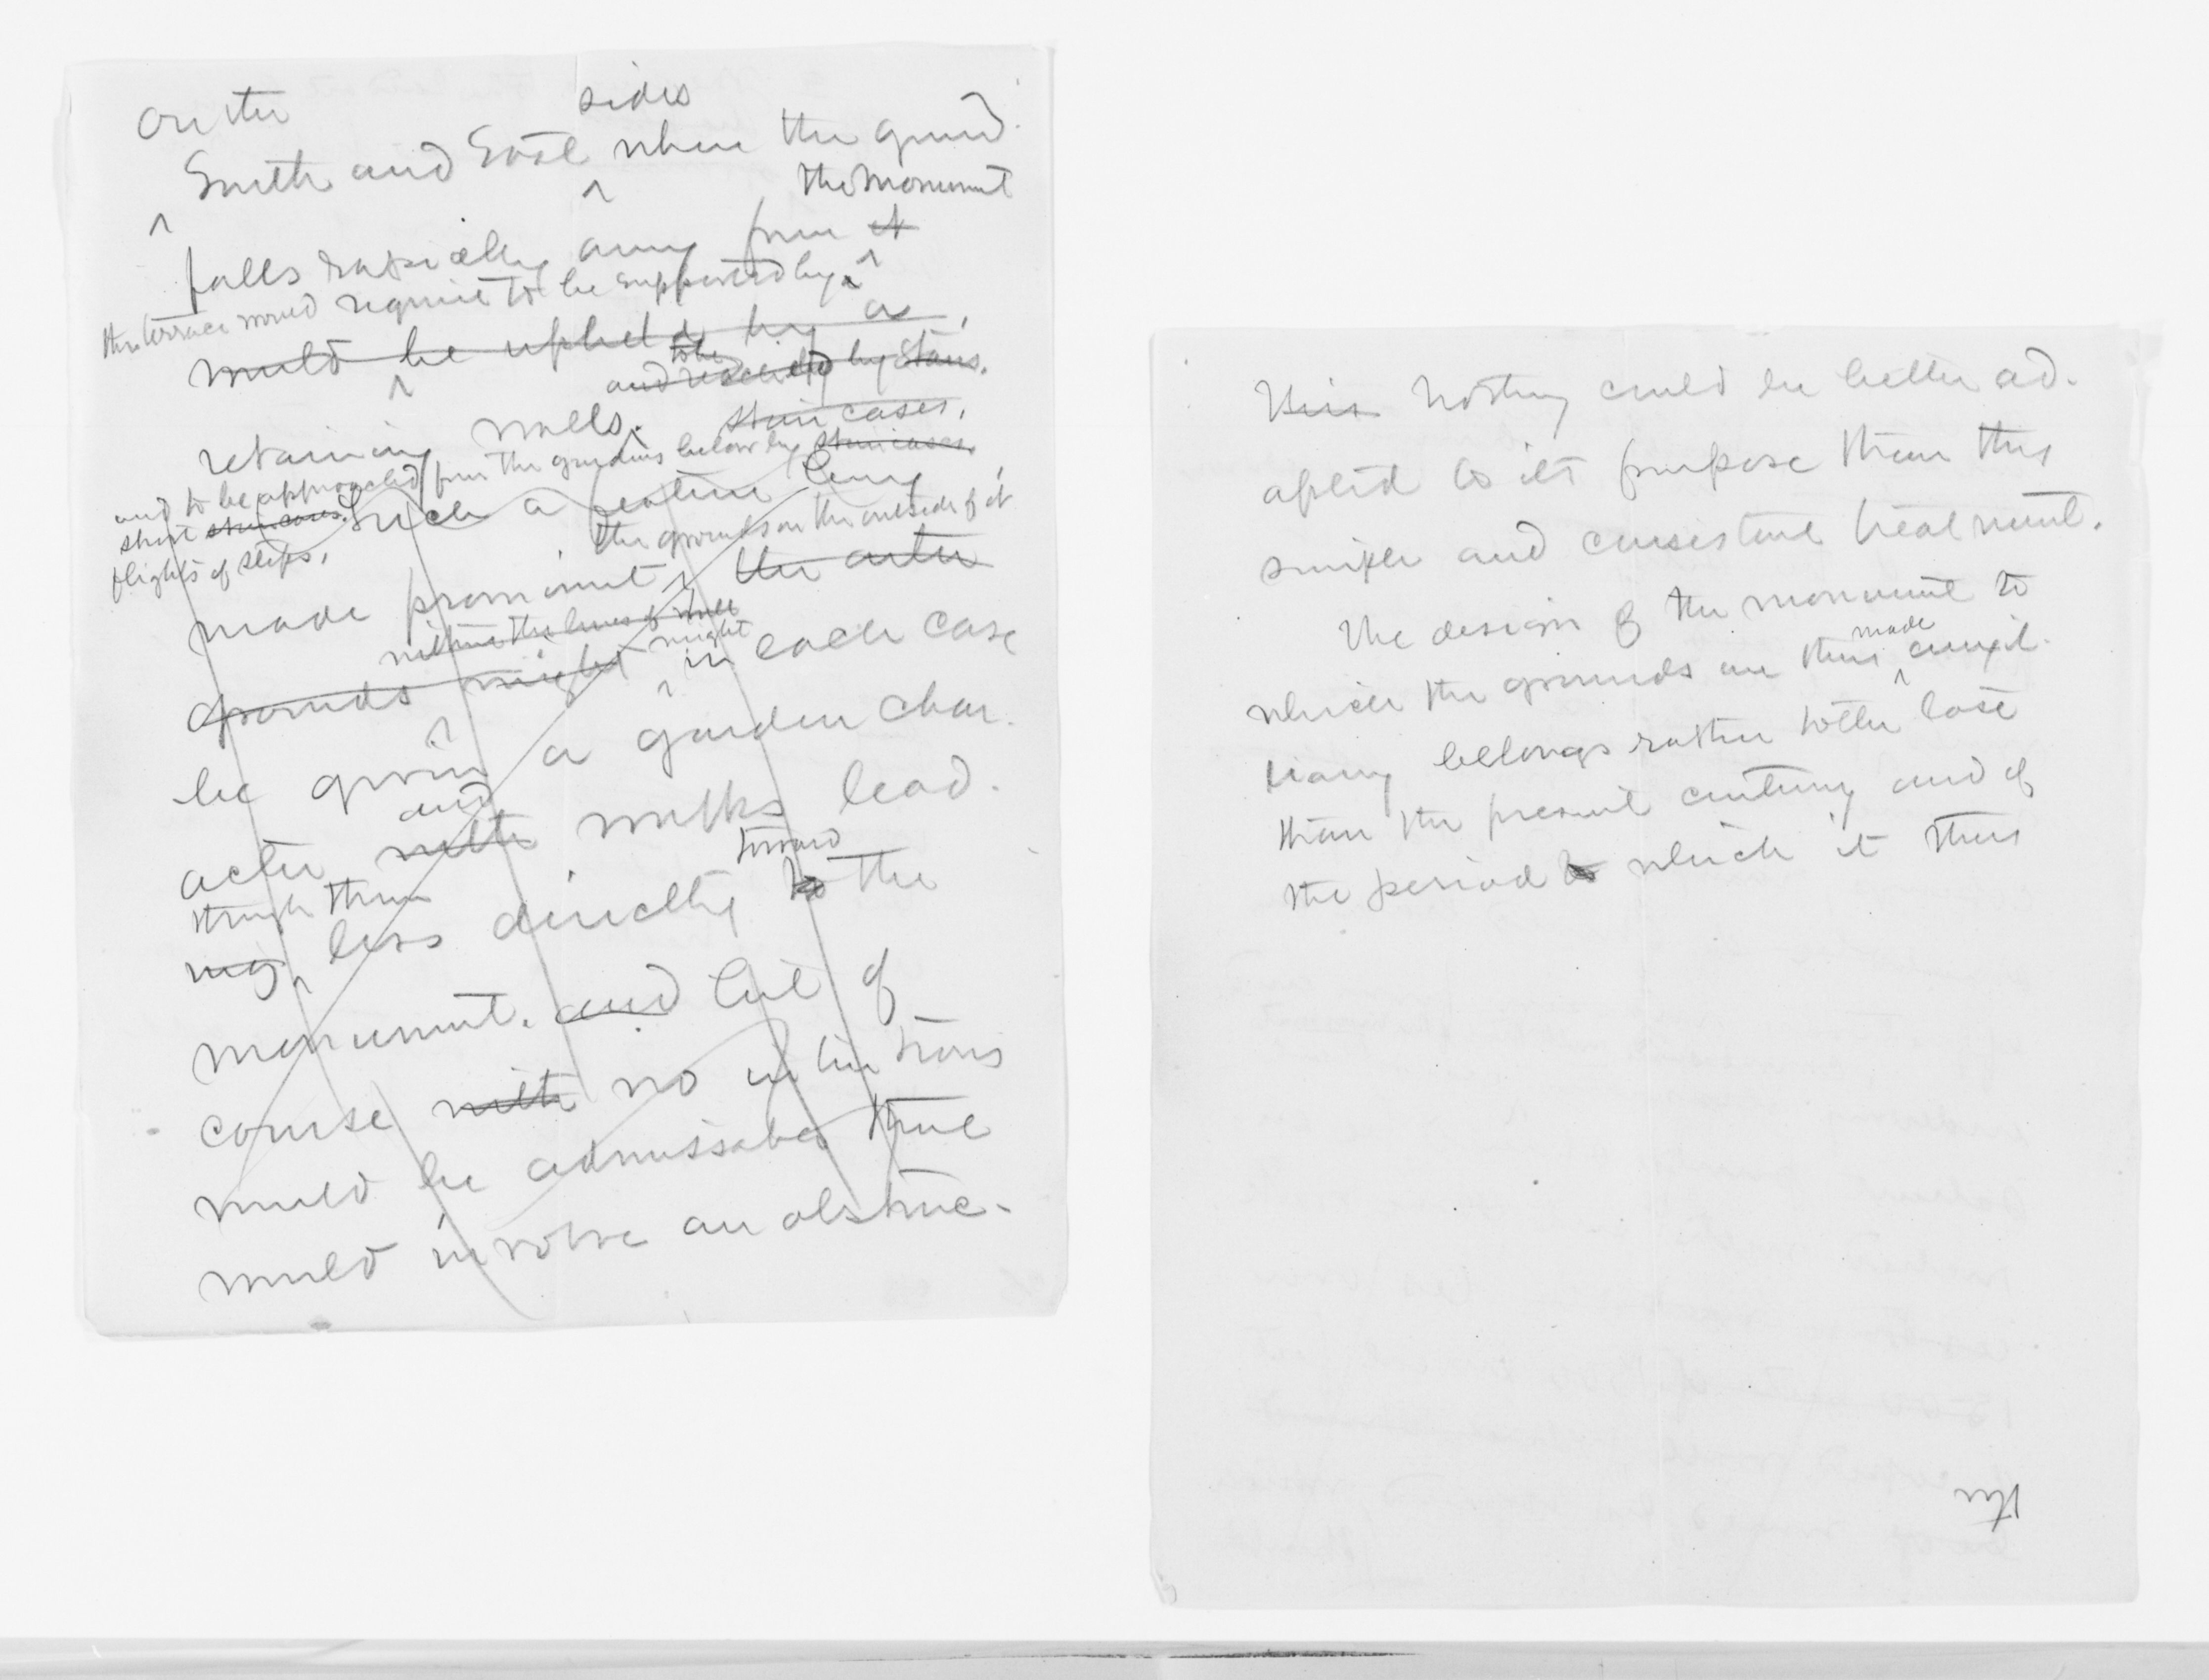 on the sides
South and East where the ground
the monument
falls rapidly away from it
the terrace would require to be supported by a
would be upheld by a
to be
and reached by stairs.
retaining walls. staircases,
and to be approached from the gardens below by staircases
short staircases. Such a feature being
flights of steps.
the grounds on the outside of it
made prominent, the outer
within the lines of wall
might
grounds might in each case
be given a garden char-
and
acter with walks lead-
through them toward
ing less directly to the
monument. and but of
course with no
would be admissable that
would involve an obstruc-
This Nothing could be better ad-
apted to its purpose than this
simple and consistent treatment.
The design of the monument to
made
which the grounds are thus auxil-
iary belongs rather to the last
than the present century and of
the period to which it thus
the